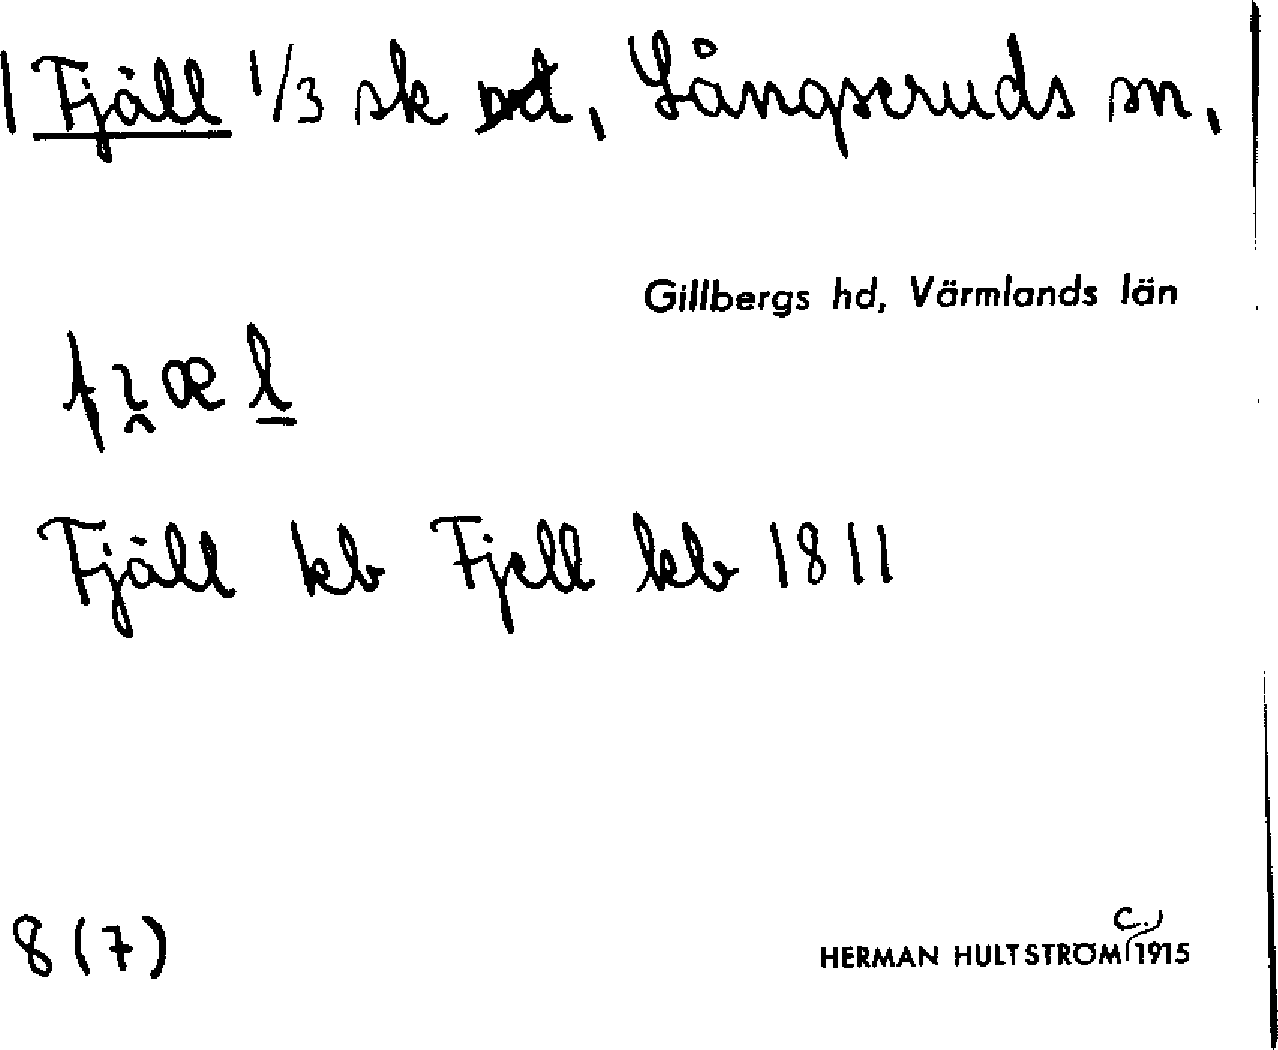 1 Fjäll 1/3 sk, Långseruds sn,
Gillbergs hd, Värmlands län
Fjäll kb Fjell kb 1811
8(7)
HERMAN HULTSTRÖM (c.) 1915